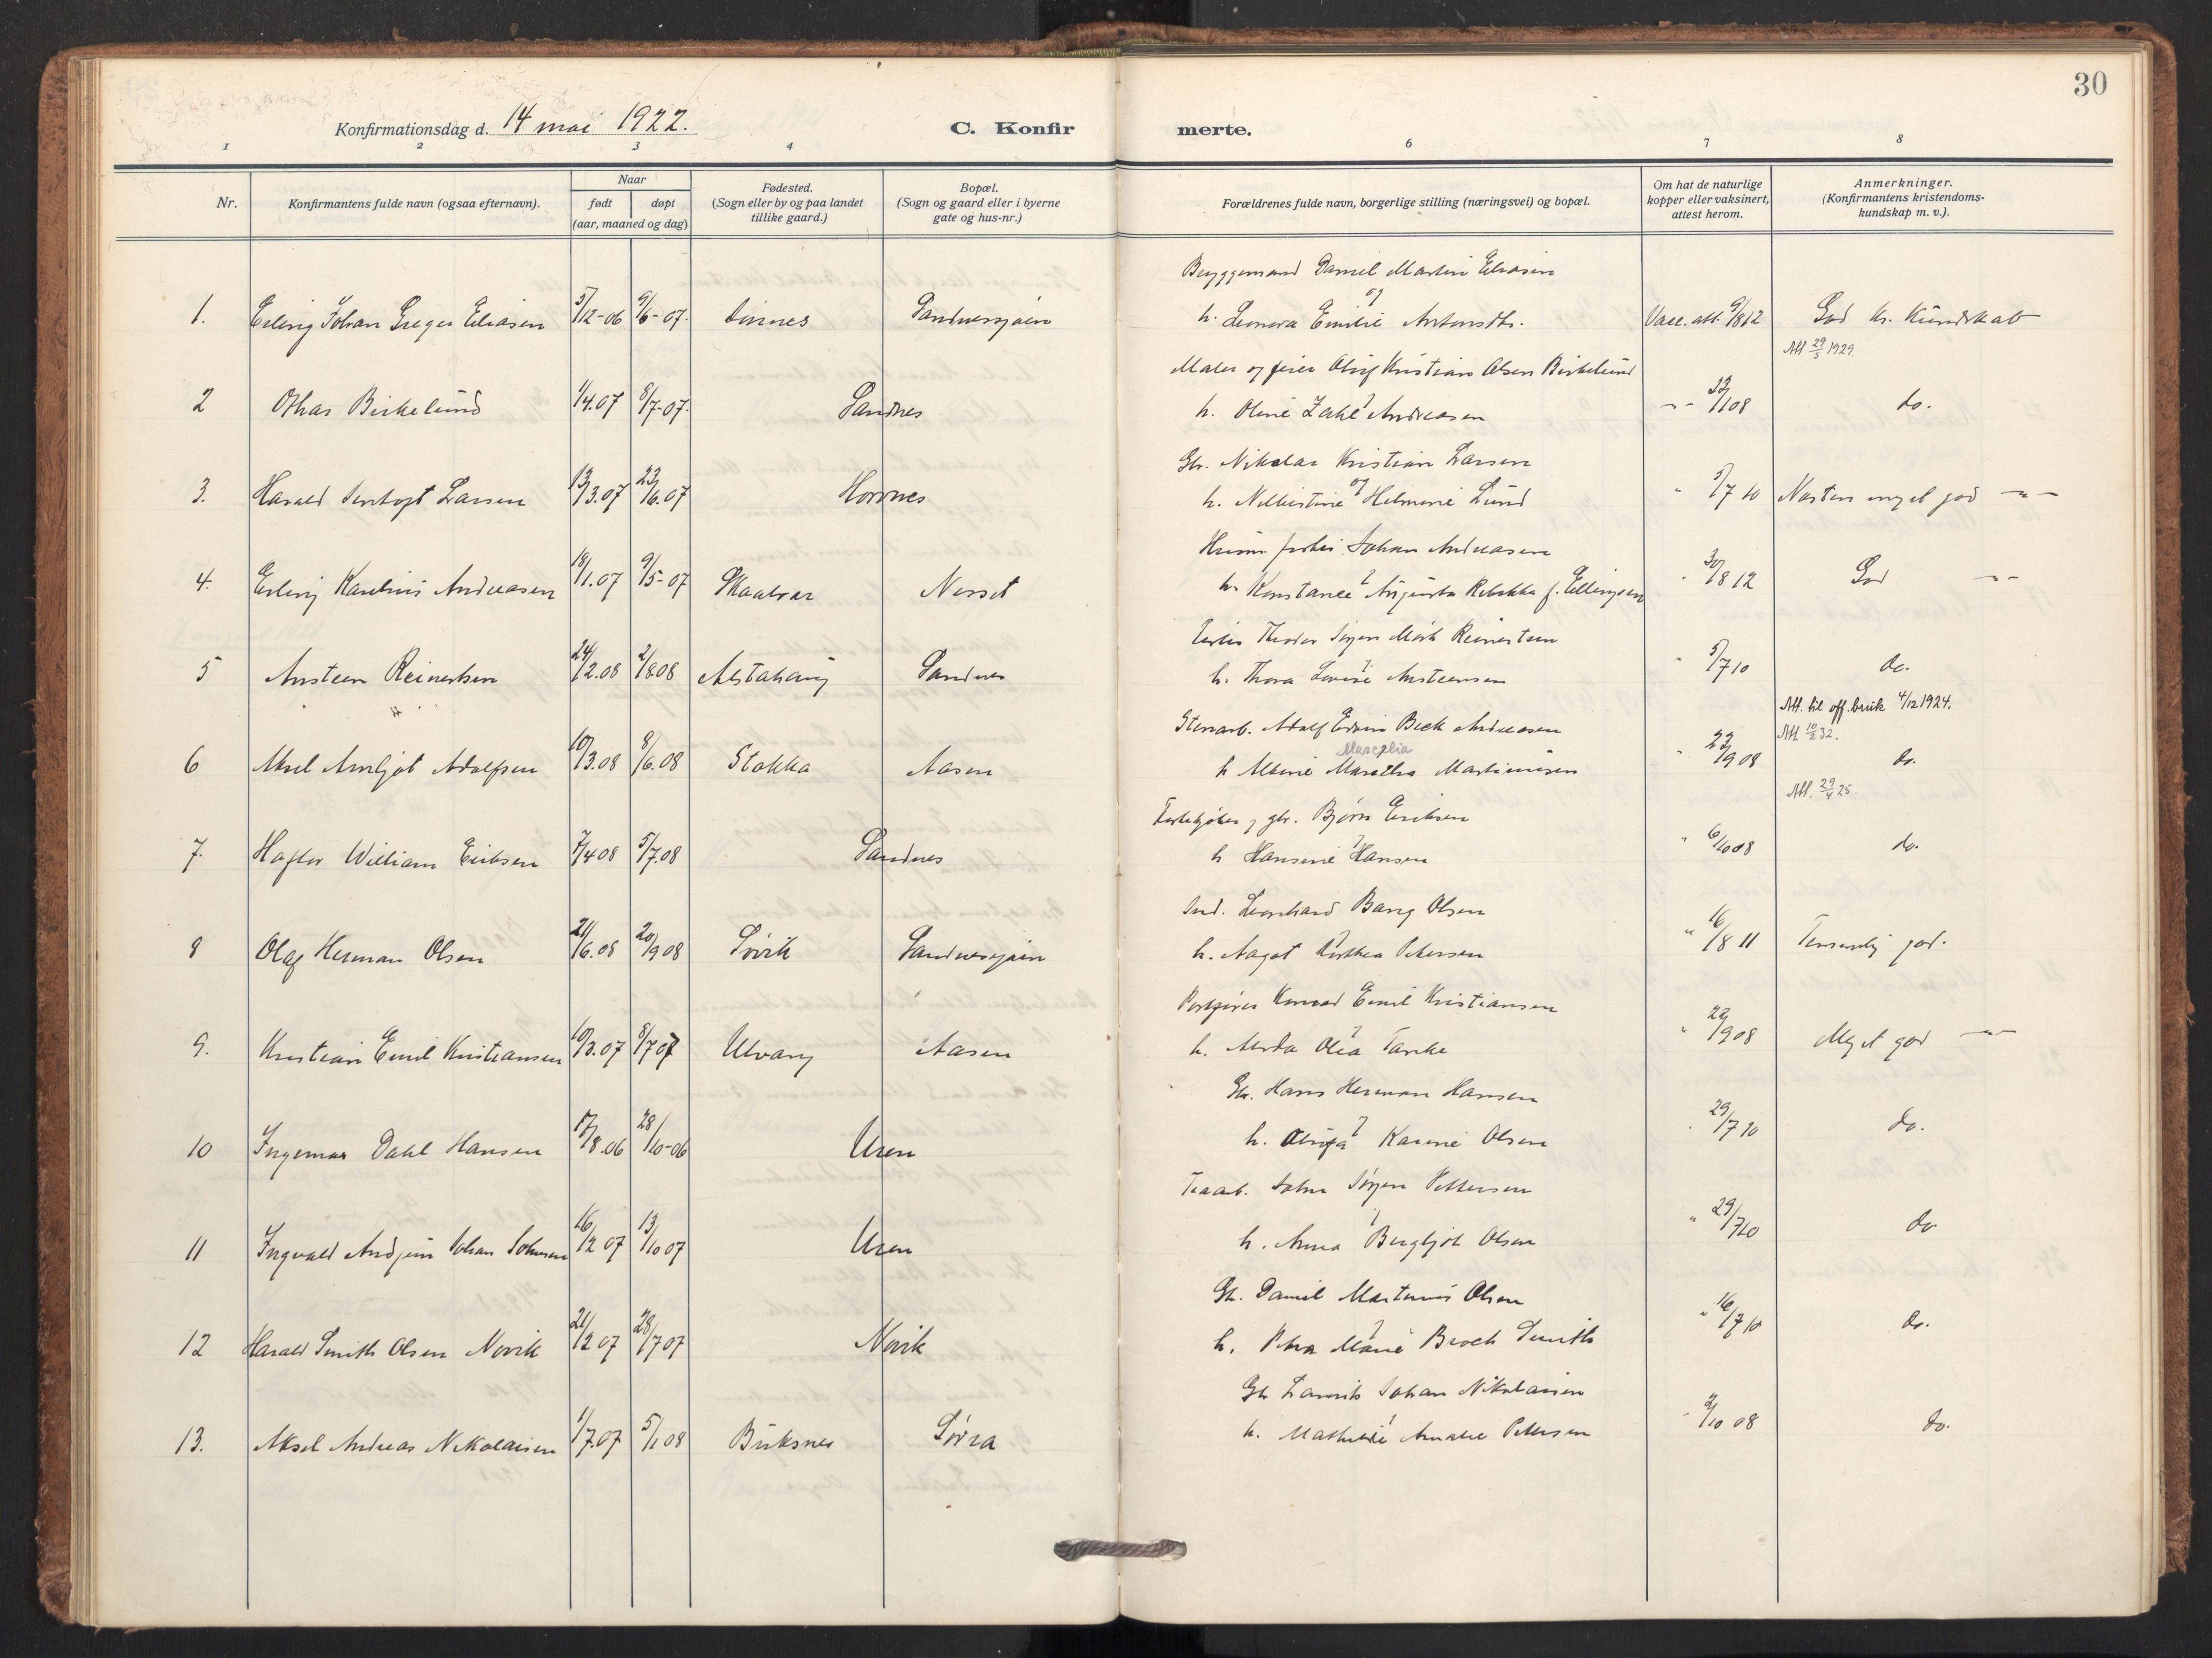 30
Konfirmationsdag d. 14 mai 1922.
C. Konfirmerte.
1 2 3 4 6 7 8
Nr.
Konfirmantens fulde navn (ogsaa efternavn).
Naar
født døpt
(aar, maaned og dag)
Fødested.
(Sogn eller by og paa landet
tillike gaard.)
Bopæl.
(Sogn og gaard eller i byerne
gate og hus-nr.)
Forældrenes fulde navn, borgerlige stilling (næringsvei) og bopæl.
Om hat de naturlige
kopper eller vaksinert,
attest herom.
Anmerkninger.
(Konfirmantens kristendoms-
kundskap m. v.).
Bryggemand Daniel Martin Eliasen
og
1. Erling Johan Greger Eliasen 5/12-06 9/6-07. Dønnes Sandnessjøen h. Leonora Emilie Antonsdtr. Vacc. att. 9/8 12 God kr. kundskab
Att 29/5 1929.
Maler og feier Oluf Kristian Olsen Birkelund
2 Othar Birkelund 1/4.07 8/7-07. Sandnes h. Oline Zahl Andreasen 23/1 08 do.
Gbr. Nikolai Kristian Larsen
og
3. Harald Larsen 13/3.07 23/6.07 Hornnes h. Helmine Lund " 5/7 10 Næsten meget god -"-
Johan Andreasen
4. Erling Karelius Andreasen 18/1.07 9/5-07 Skaalvær Nesset h. Konstance Augusta Rebekka f. Ellingsen " 30/8 12 God -"-
Theodor Jørgen Mørk Reinertsen
5 Austeen Reinertsen 24/2.08 2/8 08 Alstahaug Sandnes h. Thora Lovise Austeensen " 5/7 10 do.
Att. til off. bruk 4/12 1924.
Stenarb. Adolf Edvin Beck Andreasen
Att 10/2 32.
Marcelia
6 Aksel Arnljot Adolfsen 10/3.08 8/6.08 Stokka Aasen h Albine Martinusen " 22/9 08 do.
Att. 29/4 25.
gbr. Bjørn Eriksen
7. Haftor William Eriksen 7/4 08 5/7.08 Sandnes h Hansine Hansen " 6/10 08 do.
Leonhard Bang Olsen
8 Olaf Herman Olsen 21/6.08 20/9 08 Søvik Sandnessjøen h. Aagot Dorthea Petersen " 16/8 11 Temmelig god.
Konrad Emil Kristiansen
9. Kristian Emil Kristiansen 10/3.07 8/7 07 Ulvang Aasen h. Alvda Olea Tanke " 22/9 08 Meget god -"-
Gbr. Hans Herman Hansen
10 Ingemar Dahl Hansen 17/8.06 28/10-06 Uren h. Olufa Karine Olsen " 29/7 10 do.
John Jørgen Pettersen
11 Ingvald Andjuin Johan Johnsen 16/2 07 13/10 07 Uren h. Anna Bergljot Olsen " 29/7 10 do
Gbr. Daniel Martinus Olsen
12 Harald Smith Olsen Novik 21/2 07 28/7 07 Novik h. Petra Marie Broch Smith " 16/7 10 do.
Gbr Laurits Johan Nikolaisen
13. Aksel Andreas Nikolaisen 1/7.07 5/1 08 Buksnes Søvra h. Mathilde Amalie Petersen " 2/10 08 do.